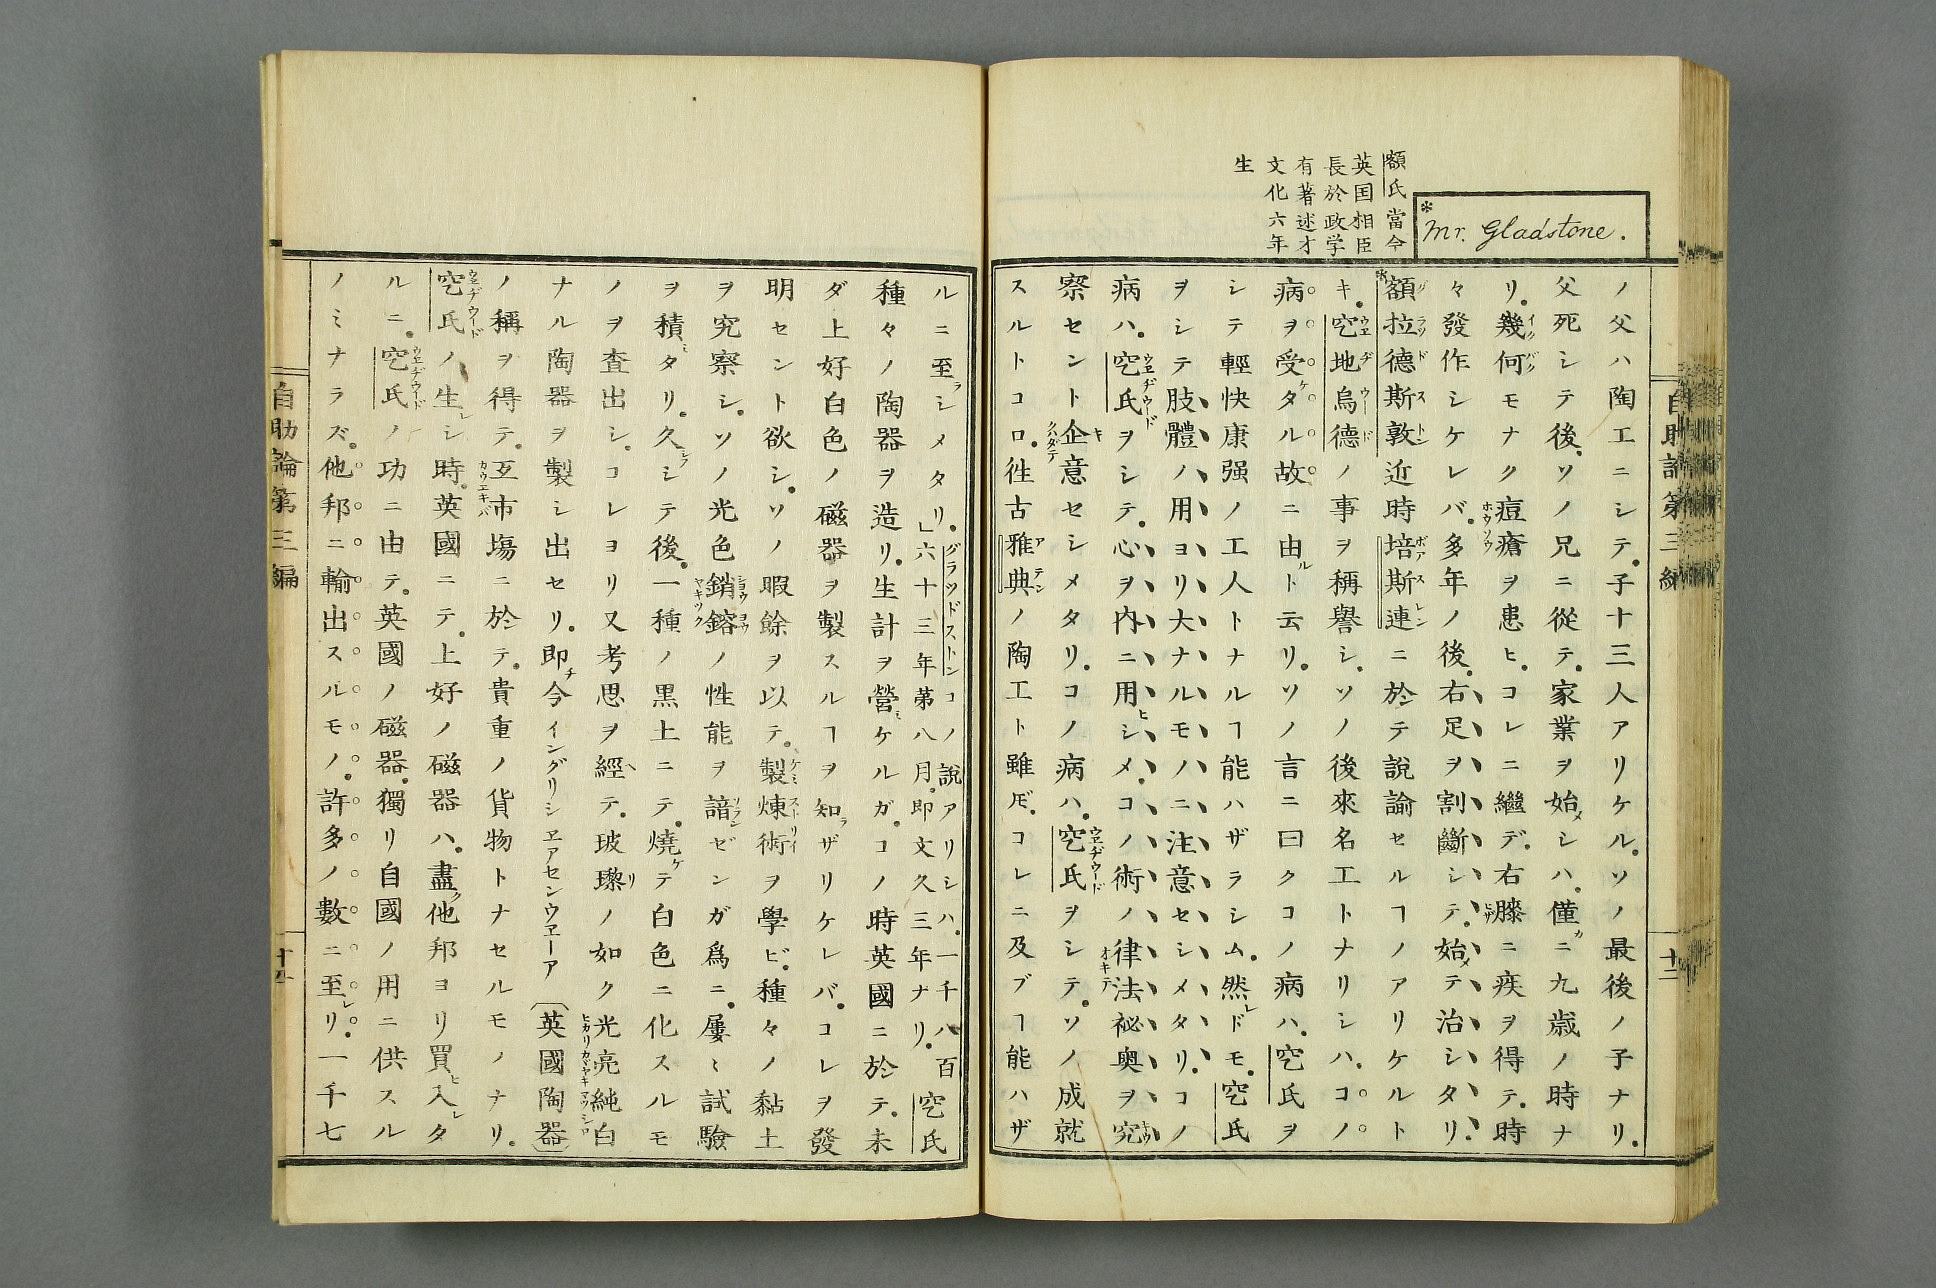 * Mr. Gladstone.
額氏當今
英国相臣
長於政学
有著述才
文化六年
生
ノ父ハ陶工ニシテ。子十三人アリケル。ソノ最後ノ子ナリ。
父死シテ後。ソノ兄ニ從テ。家業ヲ始メシハ。僅カニ九歳ノ時ナ
リ。幾何モナク痘瘡ヲ患ヒ。コレニ繼デ。右膝ニ疾ヲ得テ。時
々發作シケレバ。多年ノ後。右足ヲ割斷シテ。始メテ治シタリ。
*額拉德斯敦近時培斯連ニ於テ說論セルヿノアリケルト
キ。空地烏德ノ事ヲ稱譽シ。ソノ後來名工トナリシハ。コノ
病ヲ受ケタル故ニ由ルト云リ。ソノ言ニ曰クコノ病ハ。空氏ヲ
シテ輕快康强ノ工人トナルヿ能ハザラシム。然レドモ。空氏
ヲシテ肢體ハ、用ヨリ大ナルモノニ注意セシメタリ。コノ
病ハ。空氏ヲシテ。心ヲ内ニ用ヒシメ。コノ術ノ律法祕奥ヲ究
察セント企意セシメタリ。コノ病ハ。空氏ヲシテ。ソノ成就
スルトコロ。徃古雅典ノ陶工ト雖ドモ。コレニ及ブヿ能ハザ
自助論第三編
十二
ルニ至ラシメタリ。」グラッドストンコノ說アリシハ。一千八百六十三年第八月。即文久三年ナリ。空氏
種々ノ陶器ヲ造リ。生計ヲ營ミケルガ。コノ時英國ニ於テ。未
ダ上好白色ノ磁器ヲ製スルヿヲ知ラザリケレバ。コレヲ發
明セント欲シ。ソノ暇餘ヲ以テ。製煉術ヲ學ビ。種々ノ黏土
ヲ究察シ。ソノ光色銷鎔ノ性能ヲ諳ゼンガ爲ニ。屢ミ試驗
ヲ積ミタリ。久シフシテ後。一種ノ黒土ニテ。燒ケテ白色ニ化スルモ
ノヲ査出シ。コレヨリ又考思ヲ經ヘテ。玻瓈ノ如ク光亮純白
ナル陶器ヲ製シ出セリ。即チ今イングリシヱアセンウヱーア(英國陶器)
ノ稱ヲ得テ。互市塲ニ於テ。貴重ノ貨物トナセルモノナリ。
空氏ノ生レシ時。英國ニテ。上好ノ磁器ハ。盡ク他邦ヨリ買ヒ入レタ
ルニ。空氏ノ功ニ由テ。英國ノ磁器。獨リ自國ノ用ニ供スル
ノミナラズ。他邦ニ輸出スルモノ。許多ノ數ニ至レリ。一千七
自助論第三編